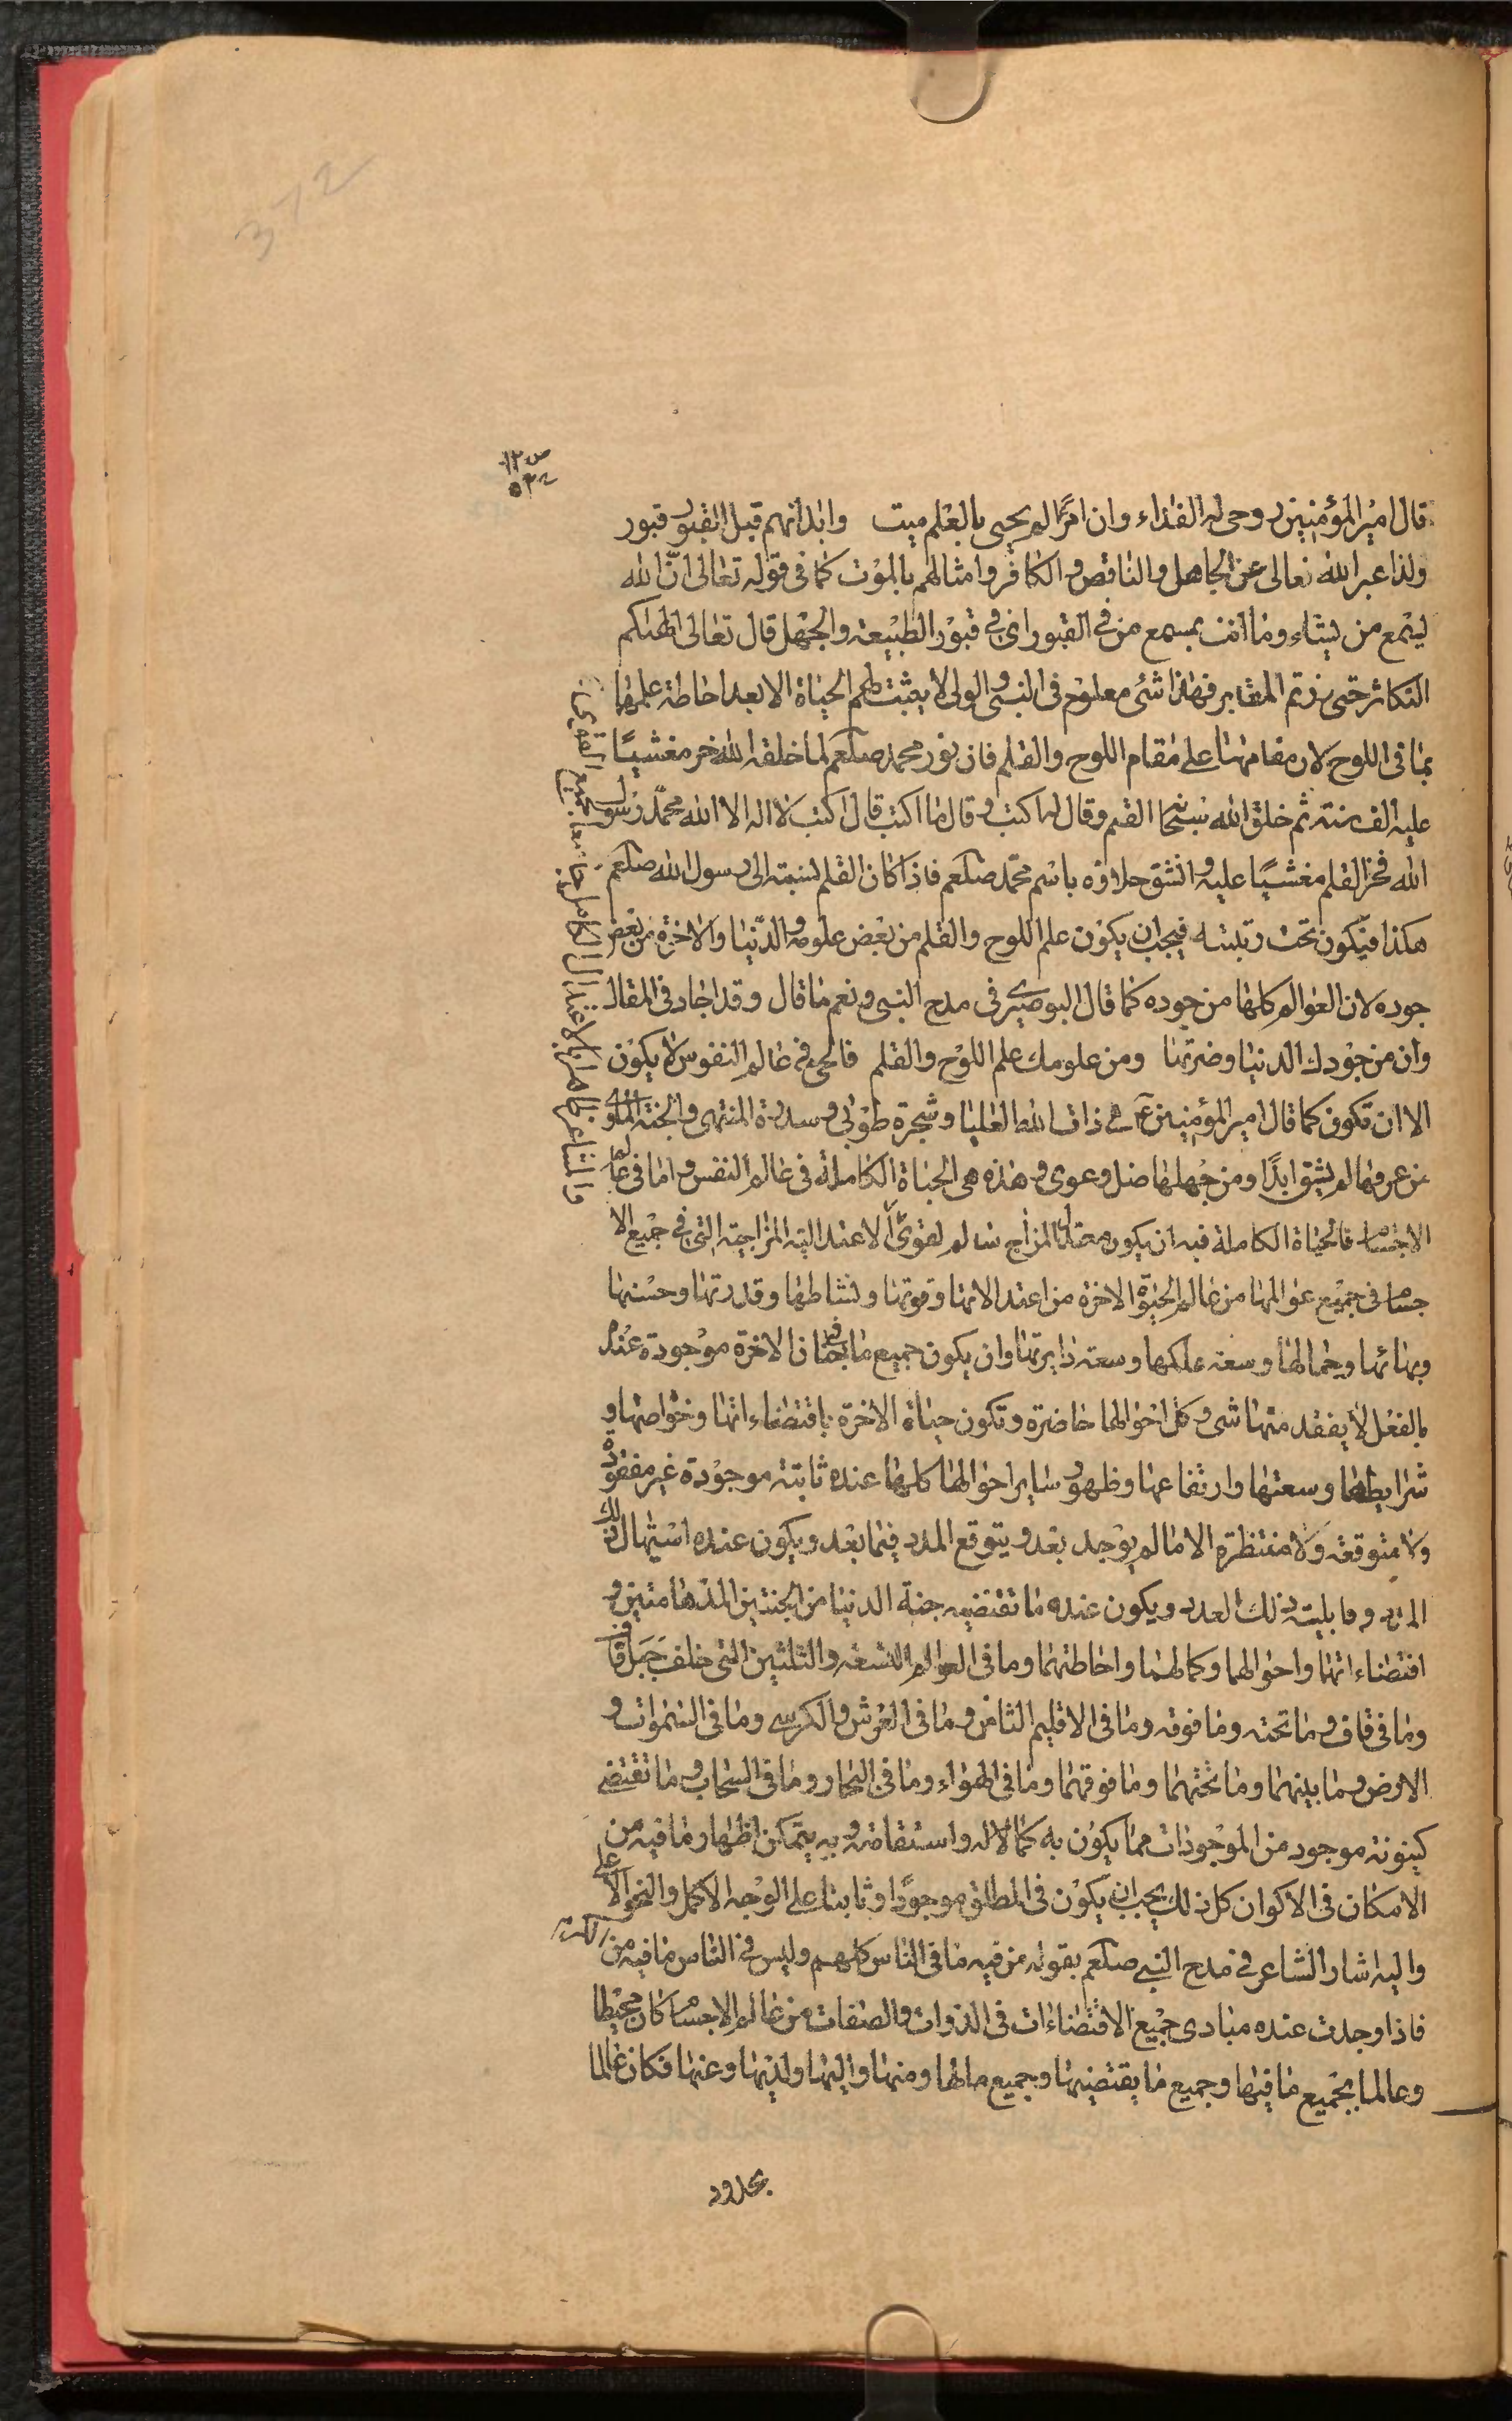 قال امير المؤمنين روحي له الفداء وان امرًا لم يحيى بالعلم ميت وابدانهم قبل القبور قبور
ولذا عبر الله تعالى عن الجاهل والناقص والكافر وامثالهم بالموت كما في قوله تعالى انّ الله
يسمع من يشاء وما انت بمسمع من في القبور اي في قبور الطبيعة والجهل قال تعالى الهيكم
التكاثر حتى زرتم المقابر فهذا شئ معلوم في النبي والولي لا يثبت لهم الحياة الا بعد احاطة علمها
بما في اللوح لان مقامهما اعلى مقام اللوح والقلم فان نور محمد صلعم لما خلقه الله خر مغشيًا
عليه الف سنة ثم خلق الله سبحا القلم وقال له اكتب وقال ما اكتب قال اكتب لا اله الا الله محمّد رسول
الله فخر القلم مغشيًا عليه وانشق حلاوة باسم محمّد صلعم فاذا كان القلم نسبته الى رسول الله صلعم
هكذا فيكون تحت رتبته فيجب ان يكون علم اللوح والقلم من بعض علومه والدّنيا والاخرة من بعض
جوده لان العوالم كلها من جوده كما قال البوصيري في مدح النبي ونعم ما قال وقد اجاد في المقال
وان من جودك الدنيا وضرتها ومن علومك علم اللوح والقلم فالحي في عالم النفوس لا يكون
الا ان تكون كما قال امير المؤمنين ع في ذات الله العليا وشجرة طوبى وسدرة المنتهى والجنة الماوى
من عرفها لم يشق ابدًا ومن جهلها ضل وغوى وهذه هي الحياة الكاملة في عالم النفس واما في عالم
الاجسام فالحياة الكاملة فيه ان يكون معتدل المزاج سالم لقوى الاعتدالية المزاجية التي في جميع الا
جسام في جميع عوالمها من عالم الحيوة الاخرة من اعتدالاتها وقوتها ونشاطها وقدرتها وحسنها
وبهائها وجمالها وسعة ملكها وسعة دايرتها وان يكون جميع ما في جنان الاخرة موجودة عنده
بالفعل لا يفقد منها شى وكل احوالها حاضرة وتكون حياة الاخرة باقتضاءاتها وخواصها و
شرايطها وسعتها وارتفاعها وظهور ساير احوالها كلها عنده ثابتة موجودة غير مفقودة
ولا متوقفه ولا منتظرة الا ما لم يوجد بعد ويتوقع المدد فيما بعد ويكون عنده استيهال ذلك
المدد وقابلية ذلك العدد ويكون عنده ما تقتضيه جنة الدنيا من الجنتين المدهامتين و
اقتضاءاتها واحوالهما وكمالهما واحاطتهما وما في العوالم التسعة والثلثين التي خلف جبل قاف
وما في قاف وما تحته وما فوقه وما في الاقليم الثامن وما في العرش والكرسي وما في السموات و
الارض وما بينهما وما تحتهما وما فوقهما وما في الهواء وما في البحار وما في السحاب وما تقتضي
كينونة موجود من الموجودات مما يكون به كمالا له واستقامة وبه يتمكن اظهار ما فيه من
الامكان في الاكوان كل ذلك يجب ان يكون في المطلق موجودًا وثابتا على الوجه الاكمل والنحو الاعلى
واليه اشار الشاعر في مدح النبي صلعم بقوله من فيه ما في الناس كلهم وليس في الناس ما فيه من الكرم
فاذا وجدت عنده مبادي جميع الاقتضاءات في الذوات والصفات من عالم الاجسام كان محيطا
وعالما بجميع ما فيها وجميع ما يقتضيها وجميع مالها ومنها واليها ولديها وعنها فكان عالما
بحدود